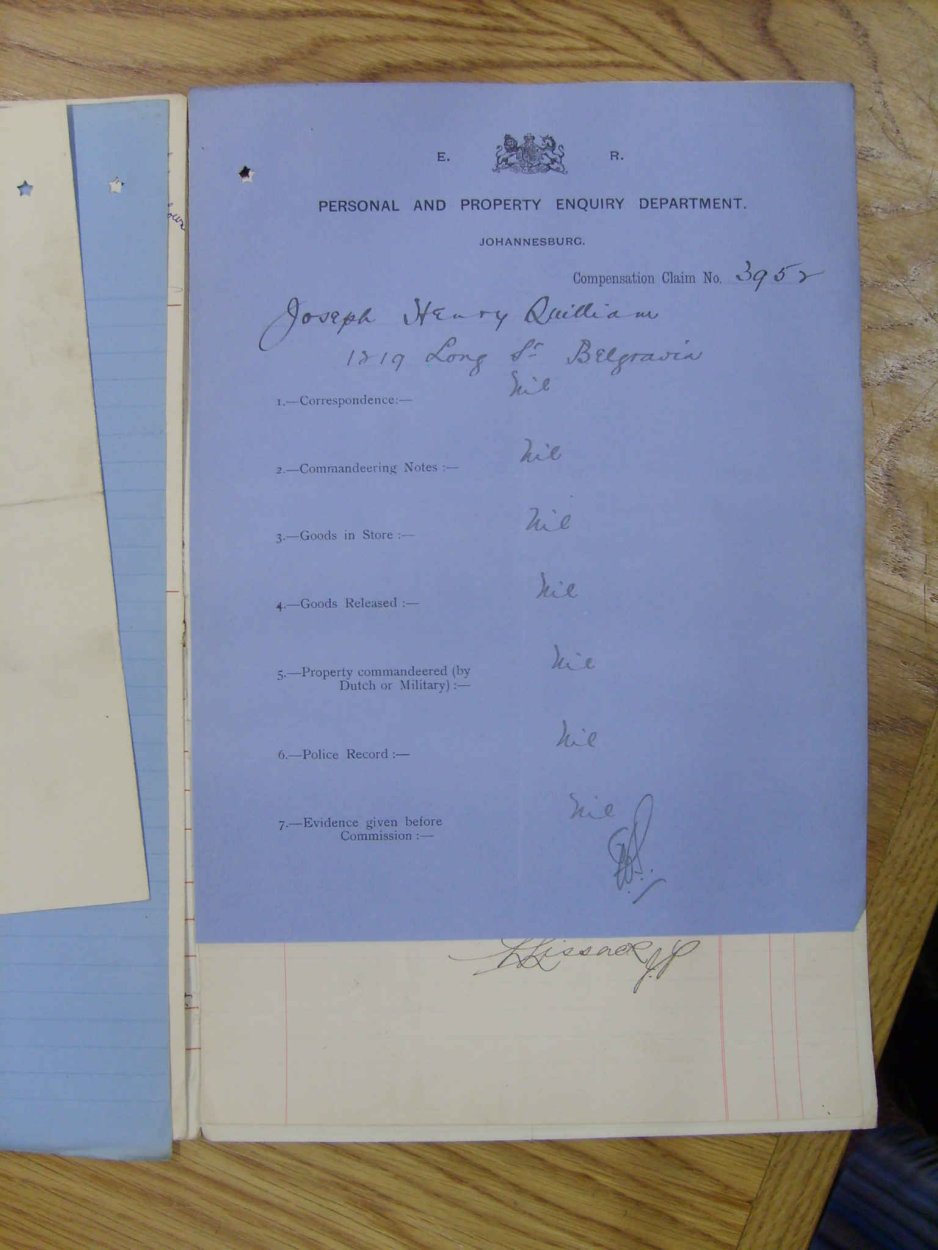 E. R.
PERSONAL AND PROPERTY ENQUIRY DEPARTMENT.
JOHANNESBURG.
Compensation Claim No. 3952
Joseph Henry Quilliam
1219 Long St Belgravia
1.—Correspondence:— Nil
2.—Commandeering Notes :— Nil
3.—Goods in Store :— Nil
4.—Goods Released :— Nil
5.—Property commandeered (by
Dutch or Military) :— Nil
6.—Police Record :— Nil
7.—Evidence given before
Commission :— Nil
Lissner JP